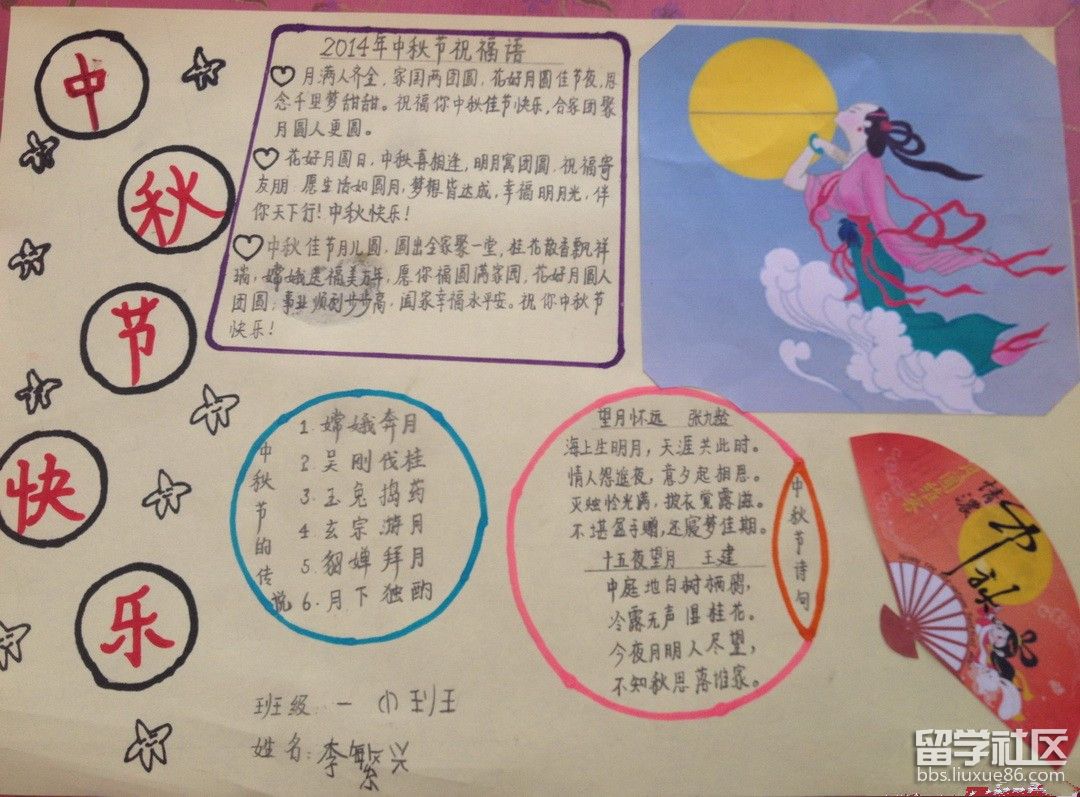 中
秋
节
快
乐
2014年中秋节祝福语
月满人齐全，家国两团圆，花好月圆佳节夜，思
念千里梦甜甜。祝福你中秋佳节快乐，合家团聚
月圆人更圆。
花好月圆日，中秋喜相逢，明月寓团圆，祝福寄
友朋，愿生活如圆月，梦想皆达成，幸福明月光，伴
你天下行！中秋快乐！
中秋佳节月儿圆，圆出全家聚一堂，桂花散香飘祥
瑞，嫦娥送福美万年，愿你福圆满家园，花好月圆人
团圆；事业顺利步步高，阖家幸福永平安。祝你中秋节
快乐！
中秋节的传说
1.嫦娥奔月
2.吴刚伐桂
3.玉兔捣药
4.玄宗游月
5.貂婵拜月
6.月下独酌
望月怀远 张九龄
海上生明月，天涯共此时。
情人怨遥夜，竟夕起相思。
灭烛怜光满，披衣觉露滋。
不堪盈手赠，还寝梦佳期。
十五夜望月 王建
中庭地白树栖鸦，
冷露无声湿桂花。
今夜月明人尽望，
不知秋思落谁家。
中秋节诗句
情浓
中秋
班级：一（1）班
姓名：李繁兴
留学社区
bbs.liuxue86.com